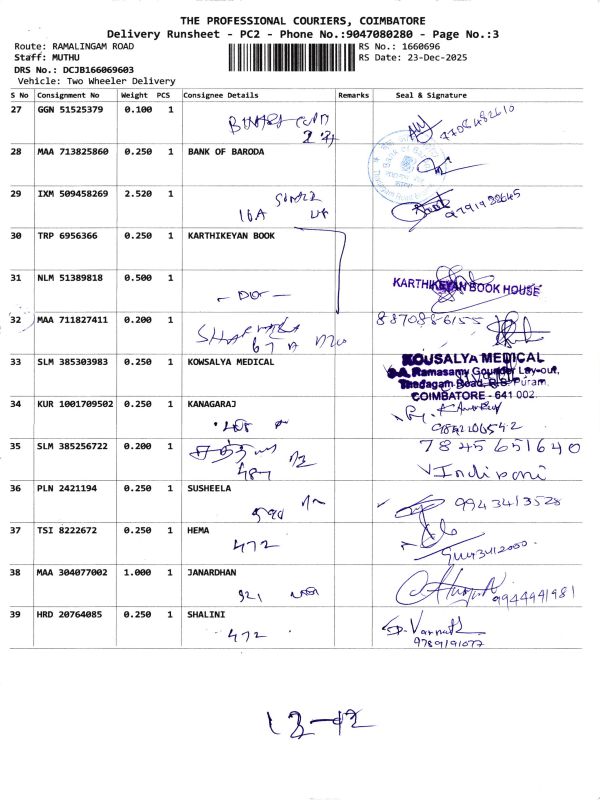 THE PROFESSIONAL COURIERS, COIMBATORE
Delivery Runsheet - PC2 - Phone No.:9047080280 - Page No.:3
Route: RAMALINGAM ROAD
RS No.: 1660696
Staff: MUTHU
RS Date: 23-Dec-2025
DRS No.: DCJB166069603
Vehicle: Two Wheeler Delivery
S No Consignment No Weight PCS Consignee Details Remarks Seal & Signature
27 GGN 51525379 0.100 1
7708482610
28 MAA 713825860 0.250 1 BANK OF BARODA
29 IXM 509458269 2.520 1
16A
9791928645
30 TRP 6956366 0.250 1 KARTHIKEYAN BOOK
31 NLM 51389818 0.500 1
- Do -
KARTHIKEYAN BOOK HOUSE
32 MAA 711827411 0.200 1 8870886155
67 A
33 SLM 385303983 0.250 1 KOWSALYA MEDICAL
KOUSALYA MEDICAL
Ramasamy Gounder Lay-out,
Thadagam Road, R.S. Puram,
COIMBATORE - 641 002.
34 KUR 1001709502 0.250 1 KANAGARAJ
35 SLM 385256722 0.200 1 7845651640
487
36 PLN 2421194 0.250 1 SUSHEELA
9943413528
37 TSI 8222672 0.250 1 HEMA
472
38 MAA 304077002 1.000 1 JANARDHAN
921
9944941981
39 HRD 20764085 0.250 1 SHALINI
472
9789191077